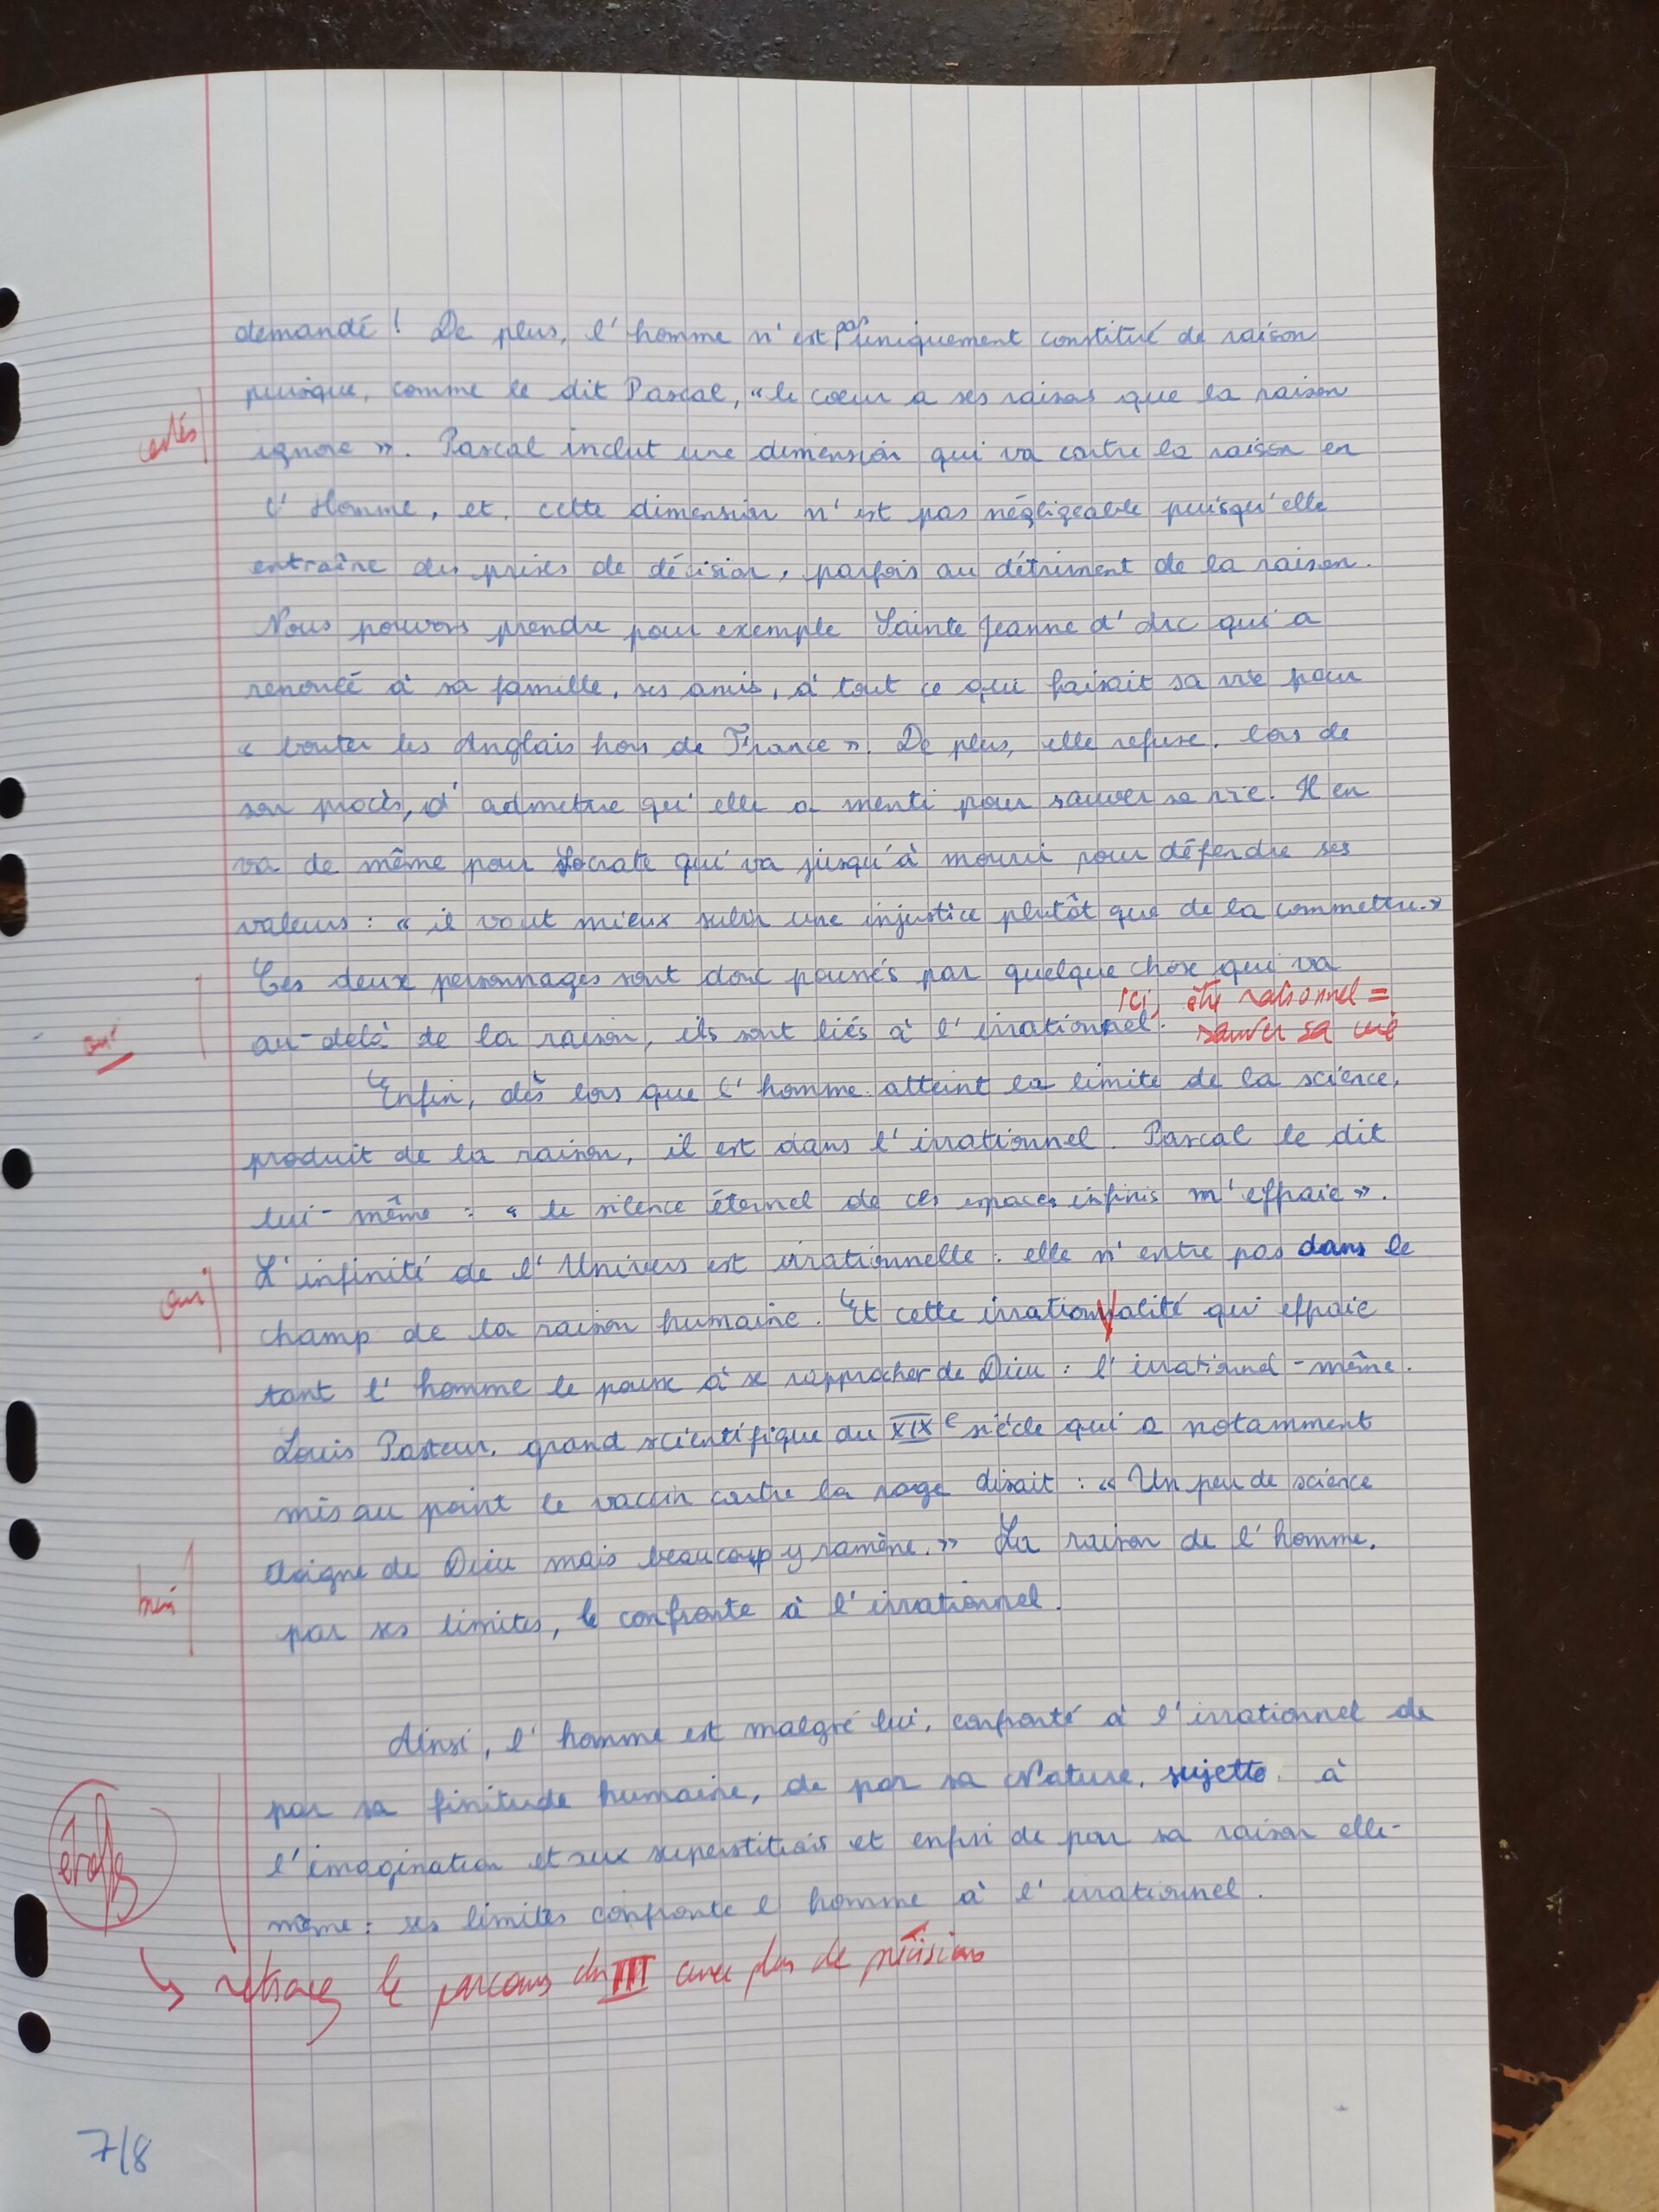 demandé ! De plus, l'homme n'est pas uniquement constitué de raison
puisque, comme le dit Pascal, « le cœur a ses raisons que la raison
certes
ignore ». Pascal inclut une dimension qui va contre la raison en
l'Homme, et cette dimension n'est pas négligeable puisqu'elle
entraîne des prises de décision, parfois au détriment de la raison.
Nous pouvons prendre pour exemple Sainte Jeanne d'Arc qui a
renoncé à sa famille, ses amis, à tout ce qui faisait sa vie pour
« bouter les Anglais hors de France ». De plus, elle refuse, lors de
son procès, d'admettre qu'elle a menti pour sauver sa vie. Il en
va de même pour Socrate qui va jusqu'à mourir pour défendre ses
valeurs : « il vaut mieux subir une injustice plutôt que de la commettre. »
Ces deux personnages sont donc poussés par quelque chose qui va
ici, être rationnel =
oui
au-delà de la raison, ils sont liés à l'irrationnel.
sauver sa vie
Enfin, dès lors que l'homme atteint la limite de la science,
produit de la raison, il est dans l'irrationnel. Pascal le dit
lui-même : « le silence éternel de ces espaces infinis m'effraie ».
L'infinité de l'Univers est irrationnelle : elle n'entre pas dans le
oui
champ de la raison humaine. Et cette irrationnalité qui effraie
tant l'homme le pousse à se rapprocher de Dieu : l'irrationnel-même.
Louis Pasteur, grand scientifique du XIXe siècle qui a notamment
mis au point le vaccin contre la rage disait : « Un peu de science
éloigne de Dieu mais beaucoup y ramène. » La raison de l'homme,
bien
par ses limites, le confronte à l'irrationnel.
Ainsi, l'homme est malgré lui, confronté à l'irrationnel de
par sa finitude humaine, de par sa Nature, sujette à
étoffer
l'imagination et aux superstitions et enfin de par sa raison elle-
même : ses limites confronte l'homme à l'irrationnel.
retracez le parcours du III avec plus de précisions
7/8